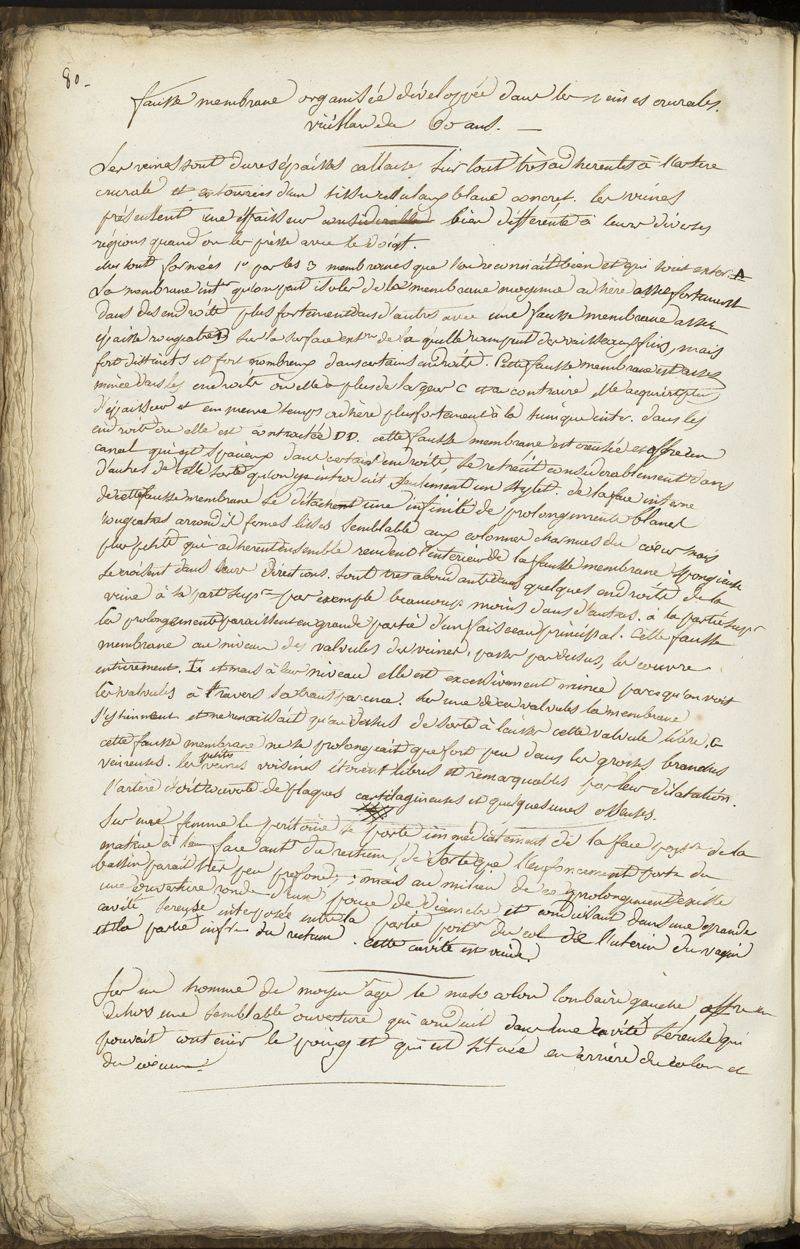 80.
fausse membrane organisée développée dans les veines crurales.
vieillard de 60 ans. —
Les veines sont dures épaisses calleuses surtout très adherentes à l'artere
crurale et entourées d'un tissu cellulaire blanc concret. les veines
présentent une épaisseur considerable bien differente à leurs diverses
régions quand on les presse avec le doigt.
elles sont formées 1° par les 3 membranes que l'on reconnait bien et qui sont A
La membrane intre qu'on peut isoler de la membrane moyenne adhère assez fortement
dans des endroits plus fortement dans d'autres avec une fausse membrane assez
épaisse rougeatre B sur la surface extre de laquelle rampent des vaisseaux fins, mais
fort distincts et fort nombreux dans certains endroits. Cette fausse membrane est assez
mince dans les endroits où elle a plus de largeur C et au contraire elle acquiert plus
d'épaisseur et en meme temps adhère plus fortement à la tunique intre. dans les
endroits où elle est contractée DD. cette fausse membrane est creusée et offre un
canal qui est spacieux dans certains endroits, se retrécit considerablement dans
d'autres de telle sorte qu'on y introduit seulement un stylet. de la face interne
de cette fausse membrane se détachent une infinité de prolongements blancs
rougeatres arrondis formes lisses semblable aux colonnes charnues du coeur mais
plus petits qui adherent ensemble rendent l'interieur de la fausse membrane spongieuse
se croisent dans leurs directions. sont très abondants dans quelques endroits de la
veine à sa part supre par exemple beaucoup moins dans d'autres. à la partie supre
les prolongements paraissent en grande partie d'un faisceau principal. Cette fausse
membrane au niveau des valvules des veines, passe par dessus, les couvre
entierement. et mais à leur niveau elle est excessivement mince parcequ'on voit
les valvules à travers sa transparence. Sur une de ces valvules la membrane
s'est interrompue et ne renaissait qu'au dessus de sorte à laisser cette valvule libre. G
cette fausse membrane ne se prolongeait que fort peu dans les grosses branches
veineuses. les petites veines voisines étoient libres et remarquables par leur dilatation.
l'artère étoit couverte de plaques cartilagineuses et quelques unes osseuses.
Sur une femme le peritoine se porte immédiatement de la face postre de la
matrice à la face antre du rectum, de sorte que l'enfoncement postre du
bassin parait très peu profond; mais au milieu de ce prolongement existe
une ouverture ronde d'un pouce de diametre et conduisant dans une grande
cavité sereuse interposée entre la partie postre du col de l'uterin du vagin
et la partie infre du rectum. cette cavité est vuide.
Sur un homme de moyen age le meso colon lombaire gauche, offre en
dehors une semblable ouverture qui conduit dans une cavité sereuse qui
pouvait contenir le poing et qui est située en arrière du colon et
du coecum.